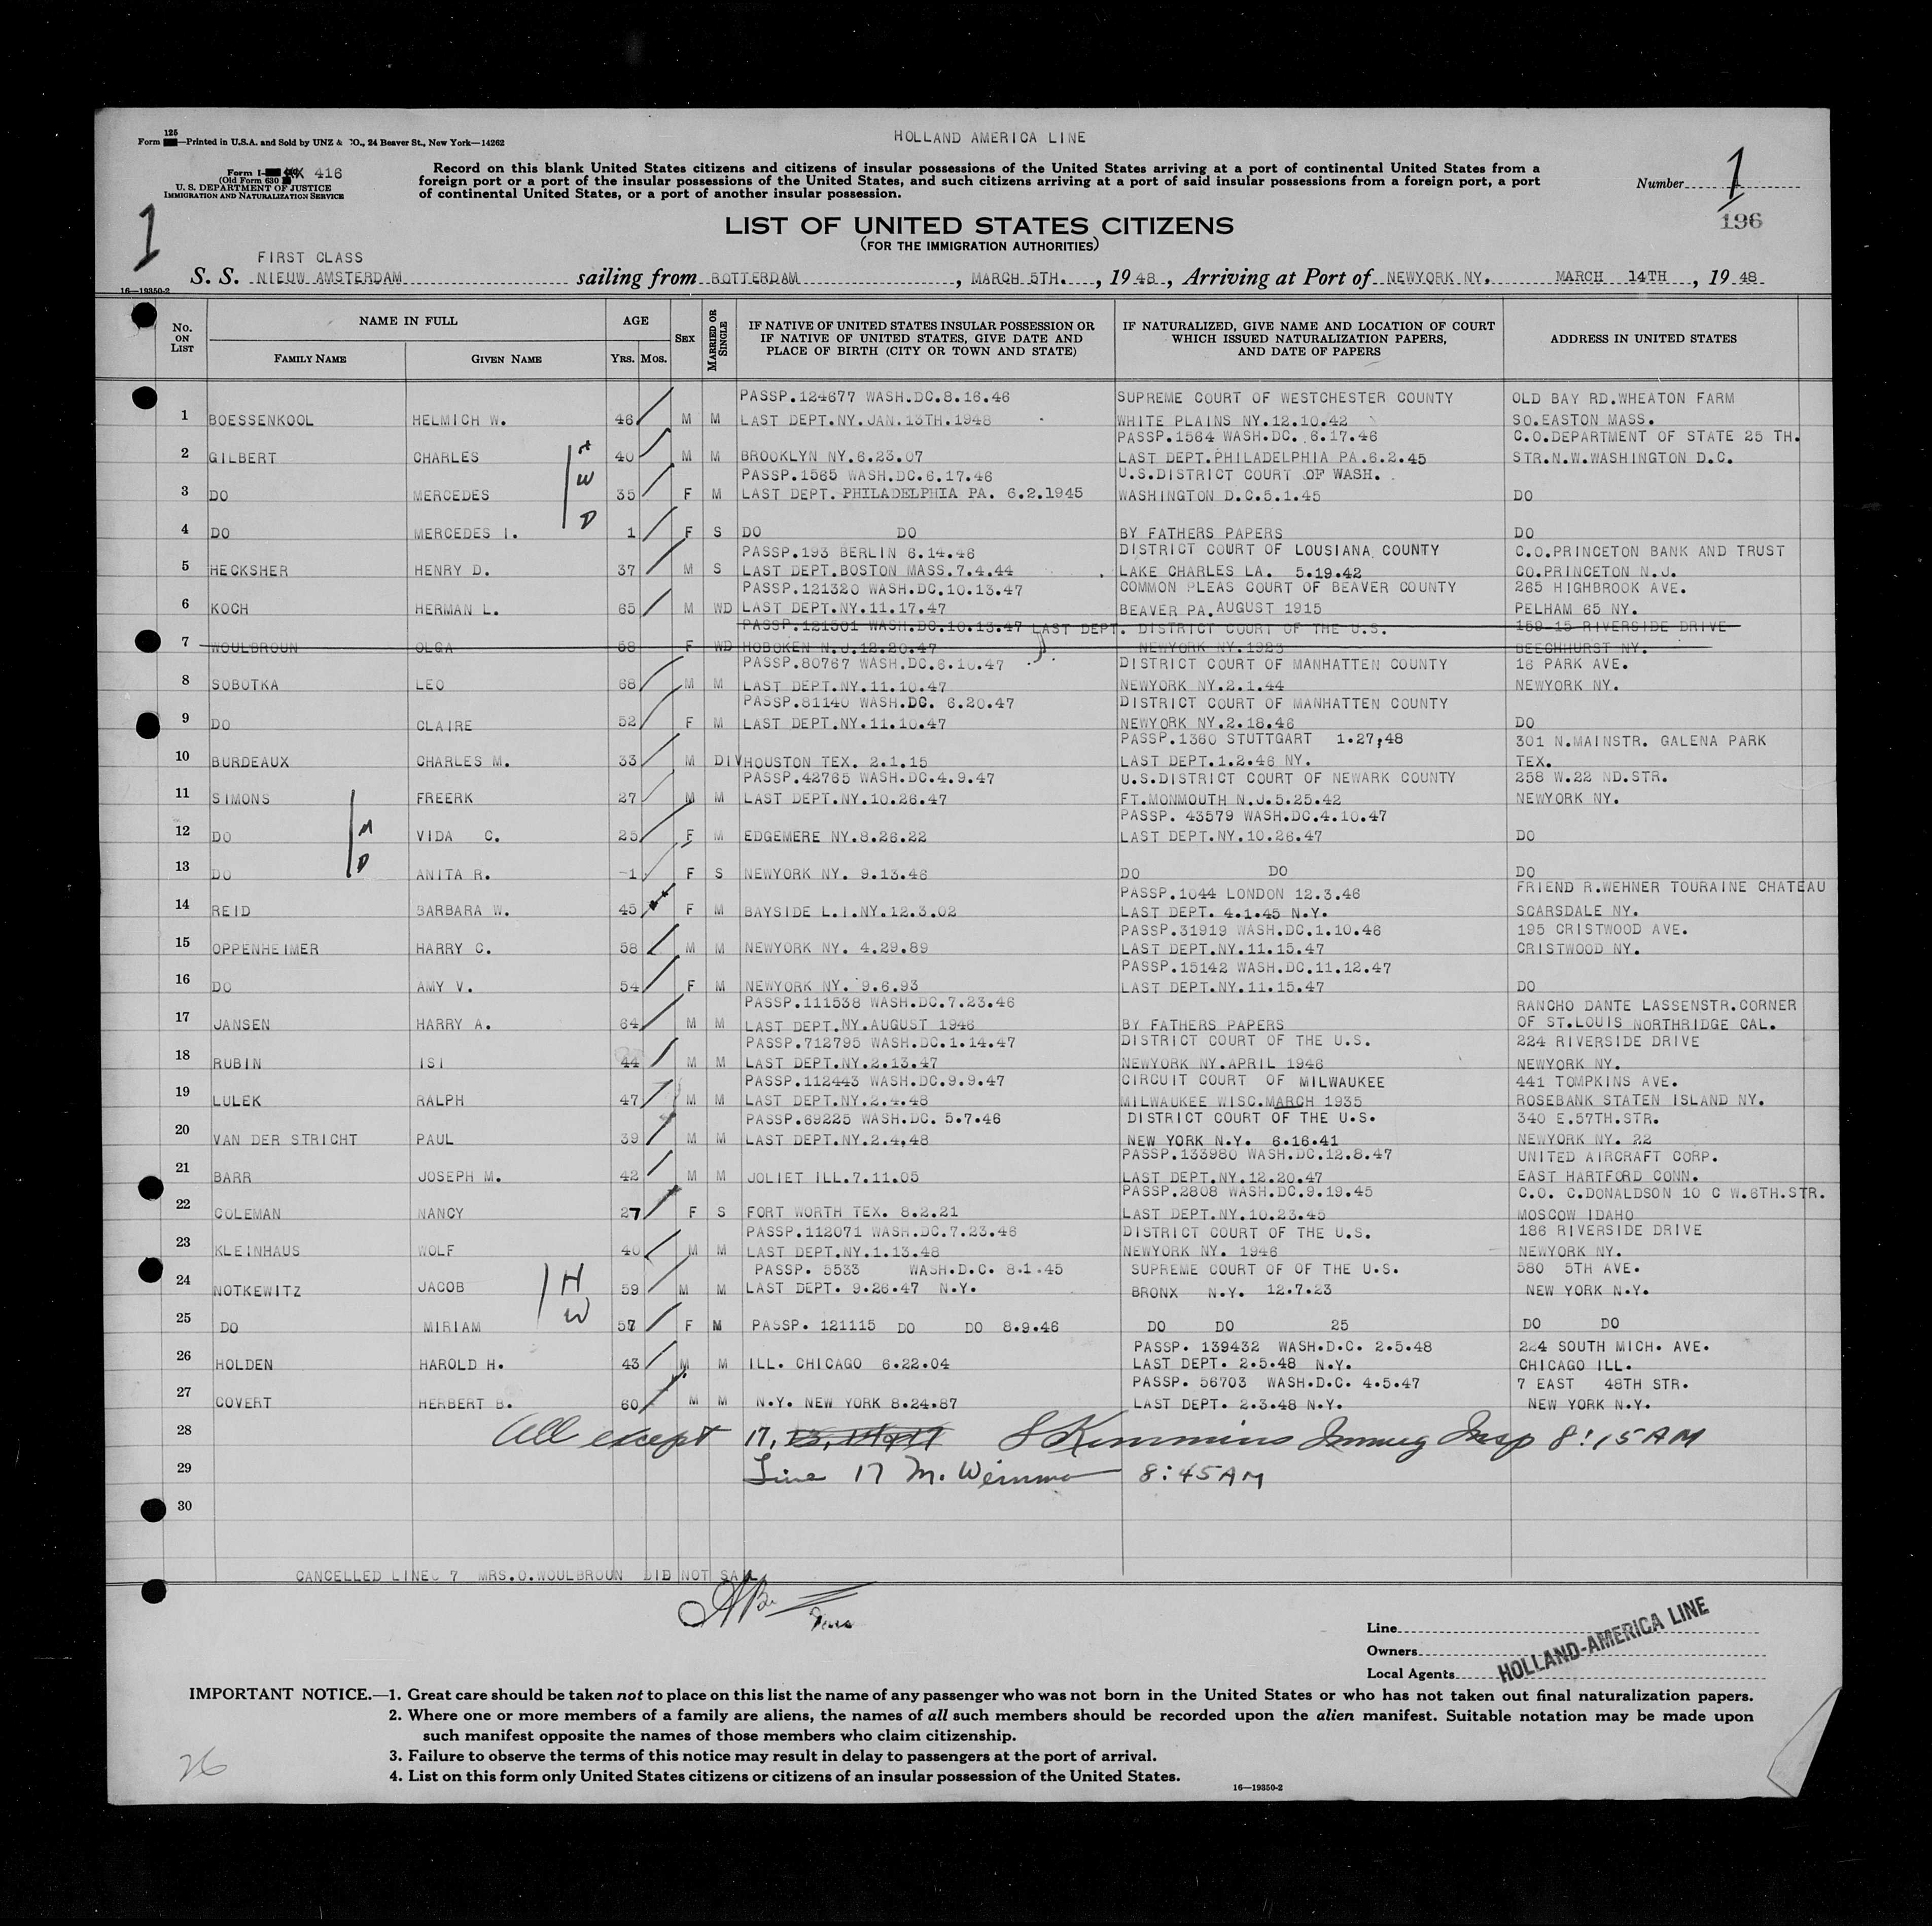 HOLLAND AMERICA LINE
125
Form —Printed in U.S.A. and Sold by UNZ & CO., 24 Beaver St., New York—14262
Form I- 416
(Old Form 630)
U. S. DEPARTMENT OF JUSTICE
IMMIGRATION AND NATURALIZATION SERVICE
Record on this blank United States citizens and citizens of insular possessions of the United States arriving at a port of continental United States from a
foreign port or a port of the insular possessions of the United States, and such citizens arriving at a port of said insular possessions from a foreign port, a port
of continental United States, or a port of another insular possession.
Number 1
196
1
LIST OF UNITED STATES CITIZENS
(FOR THE IMMIGRATION AUTHORITIES)
FIRST CLASS
S. S. NIEUW AMSTERDAM sailing from ROTTERDAM , MARCH 5TH. , 19 48 , Arriving at Port of NEWYORK NY. MARCH 14TH , 19 48
16—19350-2
No. ON LIST
NAME IN FULL
FAMILY NAME
GIVEN NAME
AGE
YRS. MOS.
SEX
MARRIED OR SINGLE
IF NATIVE OF UNITED STATES INSULAR POSSESSION OR
IF NATIVE OF UNITED STATES, GIVE DATE AND
PLACE OF BIRTH (CITY OR TOWN AND STATE)
IF NATURALIZED, GIVE NAME AND LOCATION OF COURT
WHICH ISSUED NATURALIZATION PAPERS,
AND DATE OF PAPERS
ADDRESS IN UNITED STATES
PASSP.124677 WASH.DC.8.16.46 SUPREME COURT OF WESTCHESTER COUNTY OLD BAY RD.WHEATON FARM
1 BOESSENKOOL HELMICH W. 46 M M LAST DEPT.NY.JAN.13TH.1948 WHITE PLAINS NY.12.10.42 SO.EASTON MASS.
PASSP.1564 WASH.DC. 6.17.46 C.O.DEPARTMENT OF STATE 25 TH.
2 GILBERT CHARLES H 40 M M BROOKLYN NY.6.23.07 LAST DEPT.PHILADELPHIA PA.6.2.45 STR.N.W.WASHINGTON D.C.
PASSP.1565 WASH.DC.6.17.46 U.S.DISTRICT COURT OF WASH.
3 DO MERCEDES W 35 F M LAST DEPT. PHILADELPHIA PA. 6.2.1945 WASHINGTON D.C.5.1.45 DO
4 DO MERCEDES I. D 1 F S DO DO BY FATHERS PAPERS DO
PASSP.193 BERLIN 6.14.46 DISTRICT COURT OF LOUSIANA COUNTY C.O.PRINCETON BANK AND TRUST
5 HECKSHER HENRY D. 37 M S LAST DEPT.BOSTON MASS.7.4.44 LAKE CHARLES LA. 5.19.42 CO.PRINCETON N.J.
PASSP.121320 WASH.DC.10.13.47 COMMON PLEAS COURT OF BEAVER COUNTY 265 HIGHBROOK AVE.
6 KOCH HERMAN L. 65 M WD LAST DEPT.NY.11.17.47 BEAVER PA.AUGUST 1915 PELHAM 65 NY.
PASSP.121501 WASH.DC.10.13.47 LAST DEPT. DISTRICT COURT OF THE U.S. 159-15 RIVERSIDE DRIVE
7 WOULBROUN OLGA 58 F WD HOBOKEN N.J.12.20.47 NEWYORK NY.1923 BEECHHURST NY.
PASSP.80767 WASH.DC.6.10.47 DISTRICT COURT OF MANHATTEN COUNTY 16 PARK AVE.
8 SOBOTKA LEO 68 M M LAST DEPT.NY.11.10.47 NEWYORK NY.2.1.44 NEWYORK NY.
PASSP.81140 WASH.DC. 6.20.47 DISTRICT COURT OF MANHATTEN COUNTY
9 DO CLAIRE 52 F M LAST DEPT.NY.11.10.47 NEWYORK NY.2.18.46 DO
PASSP.1360 STUTTGART 1.27,48 301 N.MAINSTR. GALENA PARK
10 BURDEAUX CHARLES M. 33 M DIV HOUSTON TEX. 2.1.15 LAST DEPT.1.2.46 NY. TEX.
PASSP.42765 WASH.DC.4.9.47 U.S.DISTRICT COURT OF NEWARK COUNTY 258 W.22 ND.STR.
11 SIMONS FREERK 27 M M LAST DEPT.NY.10.26.47 FT.MONMOUTH N.J.5.25.42 NEWYORK NY.
PASSP. 43579 WASH.DC.4.10.47
12 DO VIDA C. 25 F M EDGEMERE NY.8.26.22 LAST DEPT.NY.10.26.47 DO
13 DO D ANITA R. 1 F S NEWYORK NY. 9.13.46 DO DO DO
PASSP.1044 LONDON 12.3.46 FRIEND R.WEHNER TOURAINE CHATEAU
14 REID BARBARA W. 45 F M BAYSIDE L.I.NY.12.3.02 LAST DEPT. 4.1.45 N.Y. SCARSDALE NY.
PASSP.31919 WASH.DC.1.10.46 195 CRISTWOOD AVE.
15 OPPENHEIMER HARRY C. 58 M M NEWYORK NY. 4.29.89 LAST DEPT.NY.11.15.47 CRISTWOOD NY.
PASSP.15142 WASH.DC.11.12.47
16 DO AMY V. 54 F M NEWYORK NY. 9.6.93 LAST DEPT.NY.11.15.47 DO
PASSP.111538 WASH.DC.7.23.46 RANCHO DANTE LASSENSTR.CORNER
17 JANSEN HARRY A. 64 M M LAST DEPT.NY.AUGUST 1946 BY FATHERS PAPERS OF ST.LOUIS NORTHRIDGE CAL.
PASSP.712795 WASH.DC.1.14.47 DISTRICT COURT OF THE U.S. 224 RIVERSIDE DRIVE
18 RUBIN ISI 44 M M LAST DEPT.NY.2.13.47 NEWYORK NY.APRIL 1946 NEWYORK NY.
PASSP.112443 WASH.DC.9.9.47 CIRCUIT COURT OF MILWAUKEE 441 TOMPKINS AVE.
19 LULEK RALPH 47 M M LAST DEPT.NY.2.4.48 MILWAUKEE WISC.MARCH 1935 ROSEBANK STATEN ISLAND NY.
PASSP.69225 WASH.DC. 5.7.46 DISTRICT COURT OF THE U.S. 340 E.57TH.STR.
20 VAN DER STRICHT PAUL 39 M M LAST DEPT.NY.2.4,48 NEW YORK N.Y. 6.16.41 NEWYORK NY. 22
PASSP.133980 WASH.DC.12.8.47 UNITED AIRCRAFT CORP.
21 BARR JOSEPH M. 42 M M JOLIET ILL.7.11.05 LAST DEPT.NY.12.20.47 EAST HARTFORD CONN.
PASSP.2808 WASH.DC.9.19.45 C.O. C.DONALDSON 10 C W.6TH.STR.
22 COLEMAN NANCY 27 F S FORT WORTH TEX. 8.2.21 LAST DEPT.NY.10.23.45 MOSCOW IDAHO
PASSP.112071 WASH.DC.7.23.46 DISTRICT COURT OF THE U.S. 186 RIVERSIDE DRIVE
23 KLEINHAUS WOLF 40 M M LAST DEPT.NY.1.13.48 NEWYORK NY. 1946 NEWYORK NY.
PASSP. 5533 WASH.D.C. 8.1.45 SUPREME COURT OF OF THE U.S. 580 5TH AVE.
24 NOTKEWITZ JACOB H 59 M M LAST DEPT. 9.26.47 N.Y. BRONX N.Y. 12.7.23 NEW YORK N.Y.
25 DO MIRIAM W 57 F M PASSP. 121115 DO DO 8.9.46 DO DO 25 DO DO
PASSP. 139432 WASH.D.C. 2.5.48 224 SOUTH MICH. AVE.
26 HOLDEN HAROLD H. 43 M M ILL. CHICAGO 6.22.04 LAST DEPT. 2.5.48 N.Y. CHICAGO ILL.
PASSP. 56703 WASH.D.C. 4.5.47 7 EAST 48TH STR.
27 COVERT HERBERT B. 60 M M N.Y. NEW YORK 8.24.87 LAST DEPT. 2.3.48 N.Y. NEW YORK N.Y.
28 All except 17, Kimmins Immig Insp 8:15 AM
29 Line 17 M. 8:45 AM
30
CANCELLED LINE 7 MRS.O.WOULBROUN DID NOT SAIL
Line
Owners
Local Agents
HOLLAND-AMERICA LINE
IMPORTANT NOTICE.—1. Great care should be taken not to place on this list the name of any passenger who was not born in the United States or who has not taken out final naturalization papers.
2. Where one or more members of a family are aliens, the names of all such members should be recorded upon the alien manifest. Suitable notation may be made upon
such manifest opposite the names of those members who claim citizenship.
3. Failure to observe the terms of this notice may result in delay to passengers at the port of arrival.
4. List on this form only United States citizens or citizens of an insular possession of the United States.
16—19350-2
26